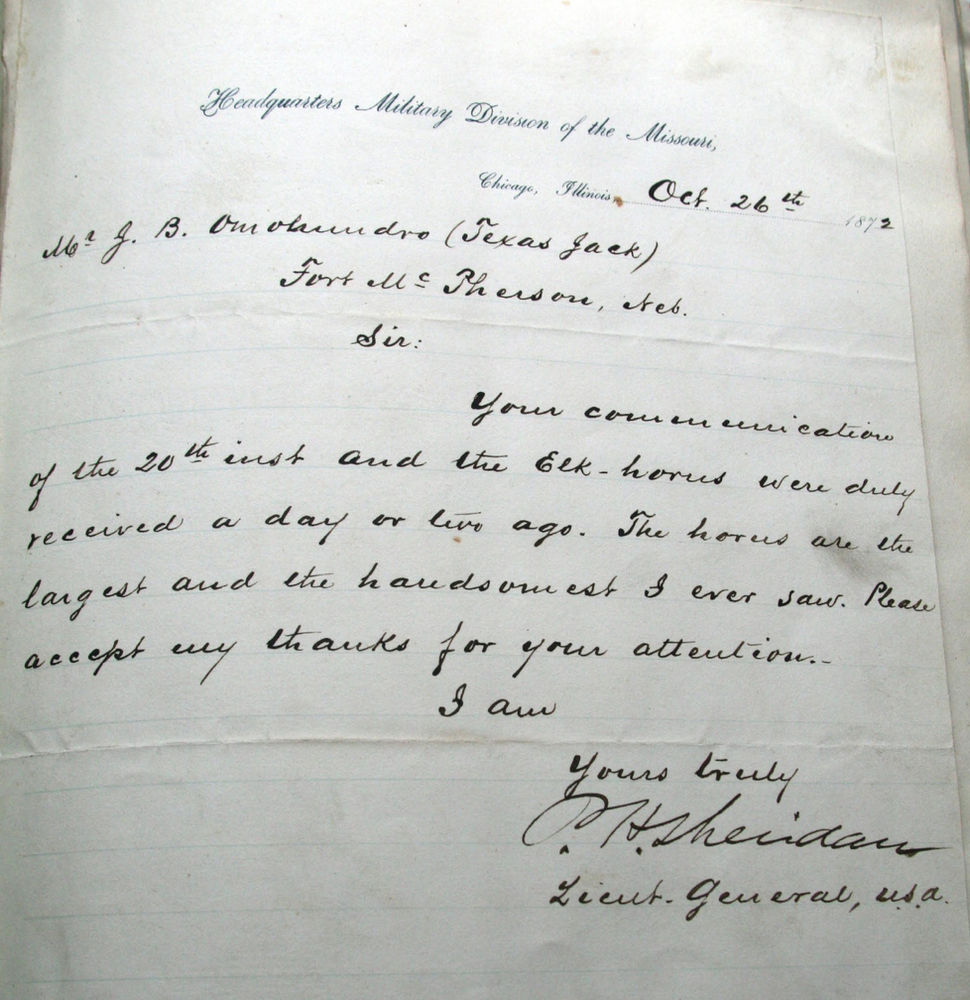 Headquarters Military Division of the Missouri,
Chicago, Illinois, Oct. 26th 1872
Mr J. B. Omohundro (Texas Jack)
Fort Mc Pherson, Neb.
Sir:
Your communication
of the 20th inst and the Elk-horns were duly
received a day or two ago. The horns are the
largest and the handsomest I ever saw. Please
accept my thanks for your attention.-
I am
Yours truly
P. H. Sheridan
Lieut. General, U.S.A.